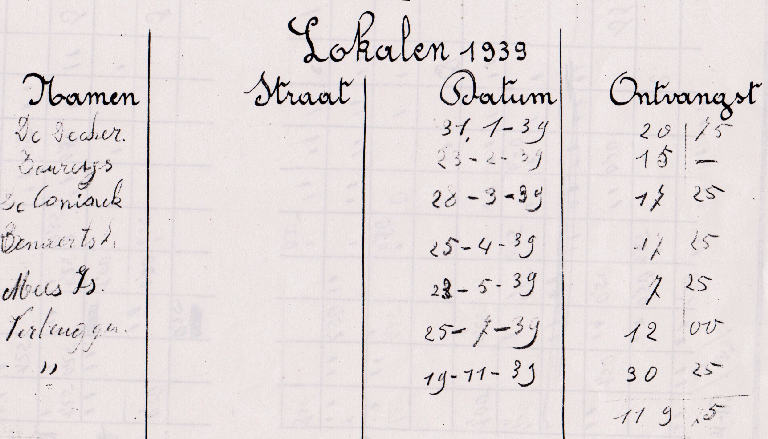 Lokalen 1939
Namen Straat Datum Ontvangst
De Decker. 31, 1-39 20 75
23-2-39 15 —
De Coninck 28-3-39 17 25
25-4-39 17 25
Mees 23-5-39 7 25
Verbruggen. 25-7-39 12 00
" 19-11-39 30 25
119 75